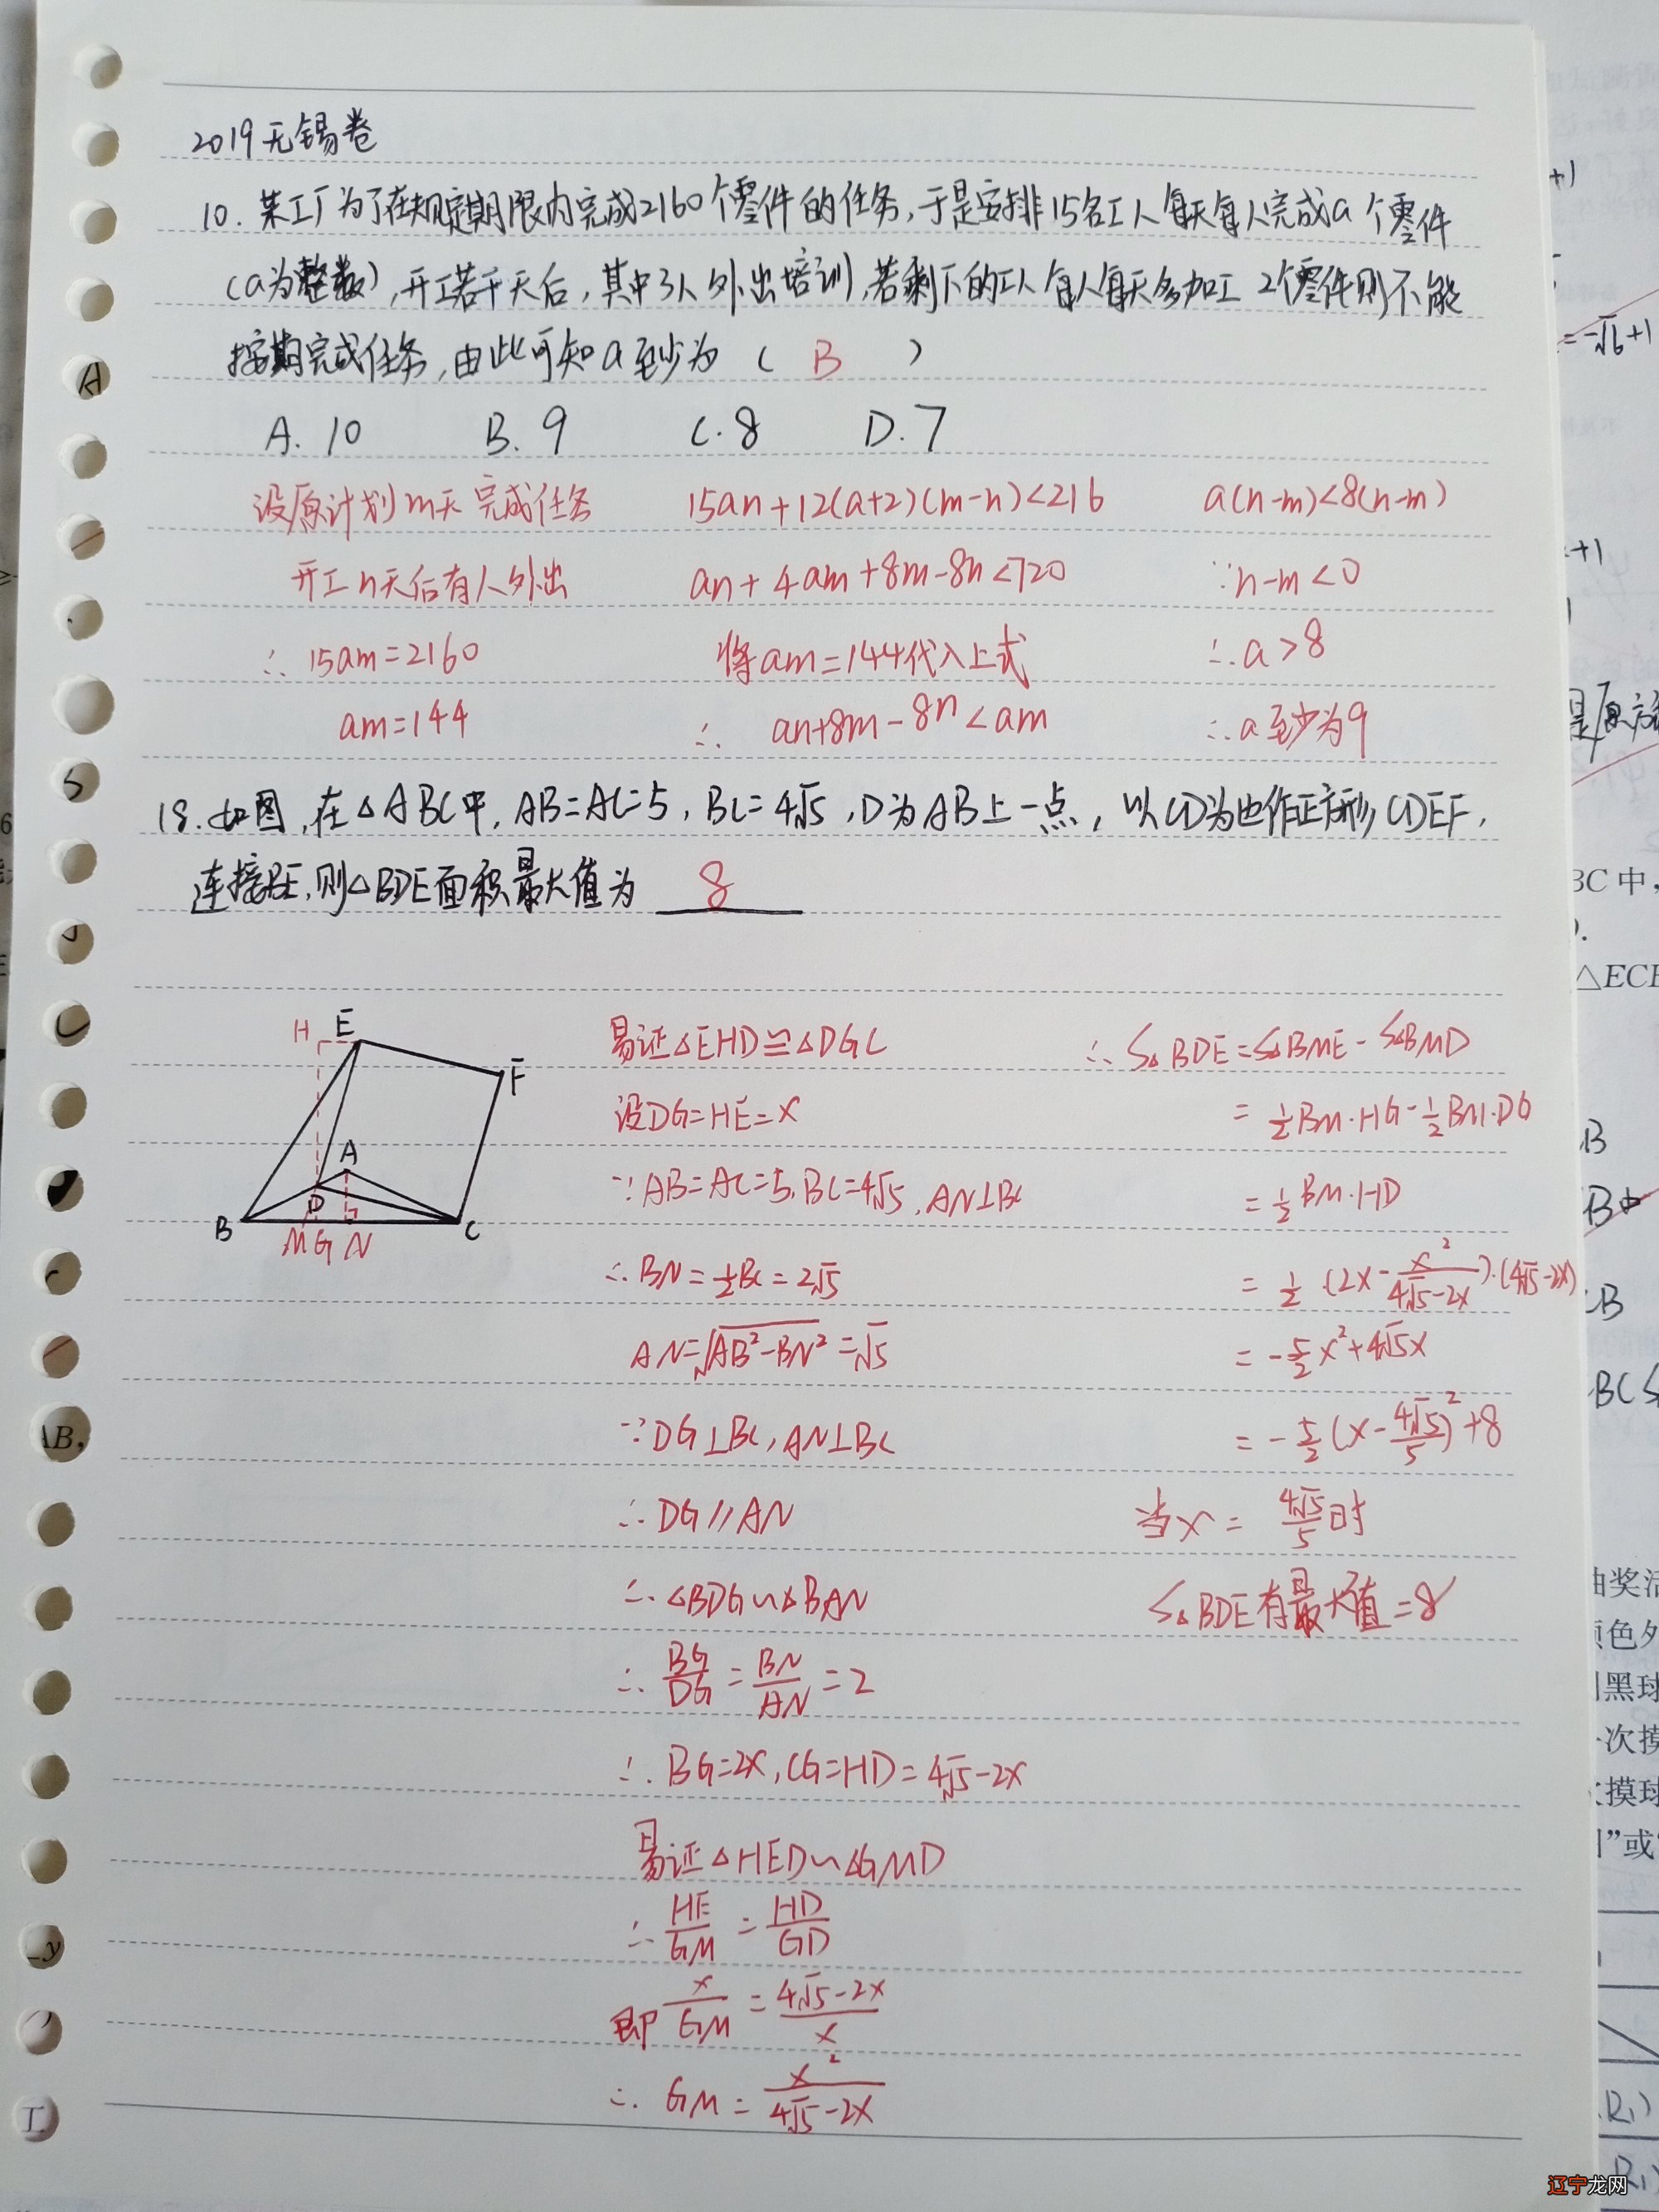 2019无锡卷
10. 某工厂为了在规定期限内完成2160个零件的任务,于是安排15名工人每天每人完成a个零件
(a为整数),开工若干天后,其中3人外出培训,若剩下的工人每人每天多加工2个零件则不能
按期完成任务,由此可知a至少为( B )
A. 10 B. 9 C. 8 D. 7
设原计划m天完成任务
开工n天后有人外出
∴ 15am=2160
am=144
15an+12(a+2)(m-n)<216
an+4am+8m-8n<720
将am=144代入上式
∴ an+8m-8n<am
a(n-m)<8(n-m)
∵n-m<0
∴a>8
∴a至少为9
18. 如图,在△ABC中,AB=AC=5,BC=4√5,D为AB上一点,以CD为边作正方形CDEF,
连接BE,则△BDE面积最大值为 8
H E
F
A
D
B M G N C
易证△EHD≌△DGC
设DG=HE=x
∵AB=AC=5,BC=4√5,AN⊥BC
∴BN=½BC=2√5
AN=√(AB²-BN²)=√5
∵DG⊥BC,AN⊥BC
∴DG∥AN
∴△BDG∽△BAN
∴ BG/DG=BN/AN=2
∴BG=2x,CG=HD=4√5-2x
易证△HED∽△GMD
∴ HE/GM=HD/GD
即 x/GM=(4√5-2x)/x
∴ GM=x²/(4√5-2x)
∴S△BDE=S△BME-S△BMD
=½BM·HG-½BM·DG
=½BM·HD
=½(2x-x²/(4√5-2x))·(4√5-2x)
=-5/2x²+4√5x
=-5/2(x-4√5/5)²+8
当x=4√5/5时
S△BDE有最大值=8
+1
=-√6+1
+1
BC中,
△ECE
B
CB
AB,
y
抽奖活
颜色外
黑球
次摸
摸球
”或
R₁)
R₁)
辽宁龙网